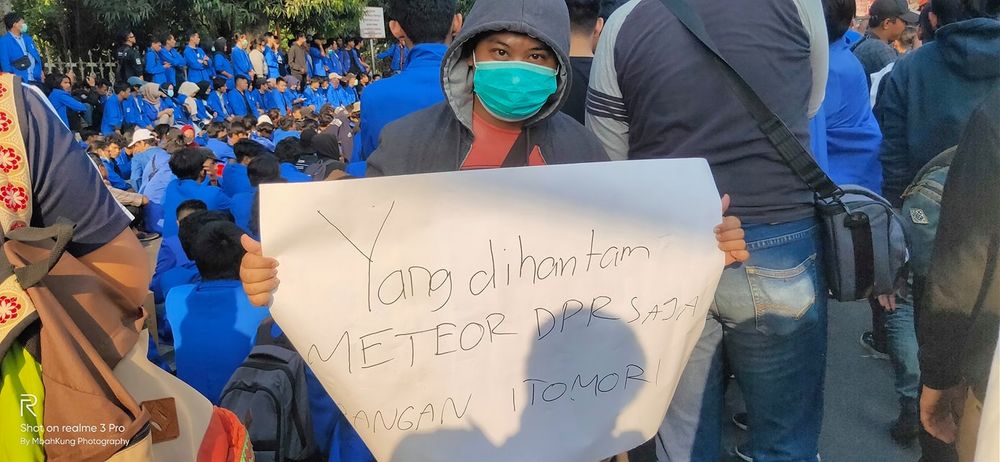 Yang dihantam
METEOR DPR SAJA
JANGAN ITOMORI
R
Shot on realme 3 Pro
By MbahKung Photography